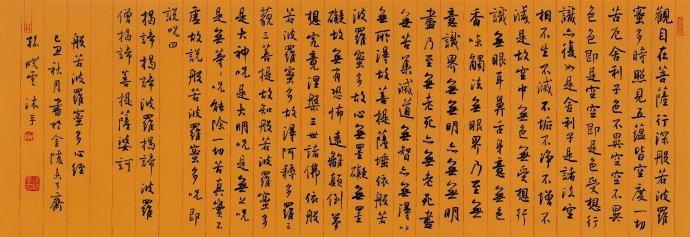 觀自在菩薩行深般若波羅
蜜多時照見五蘊皆空度一切
苦厄舍利子色不異空空不異
色色即是空空即是色受想行
識亦復如是舍利子是諸法空
相不生不滅不垢不淨不增不
減是故空中無色無受想行
識無眼耳鼻舌身意無色聲
香味觸法無眼界乃至無
意識界無無明亦無無明
盡乃至無老死亦無老死盡
無苦集滅道無智亦無得以
無所得故菩提薩埵依般若
波羅蜜多故心無罣礙無罣
礙故無有恐怖遠離顛倒夢
想究竟涅槃三世諸佛依般
若波羅蜜多故得阿耨多羅三
藐三菩提故知般若波羅蜜多
是大神咒是大明咒是無上咒
是無等等咒能除一切苦真實不
虛故說般若波羅蜜多咒即
說咒曰
揭諦揭諦波羅揭諦波羅
僧揭諦菩提薩婆訶
般若波羅蜜多心經
己丑秋月書於金陵齋
孫曉雲沐手